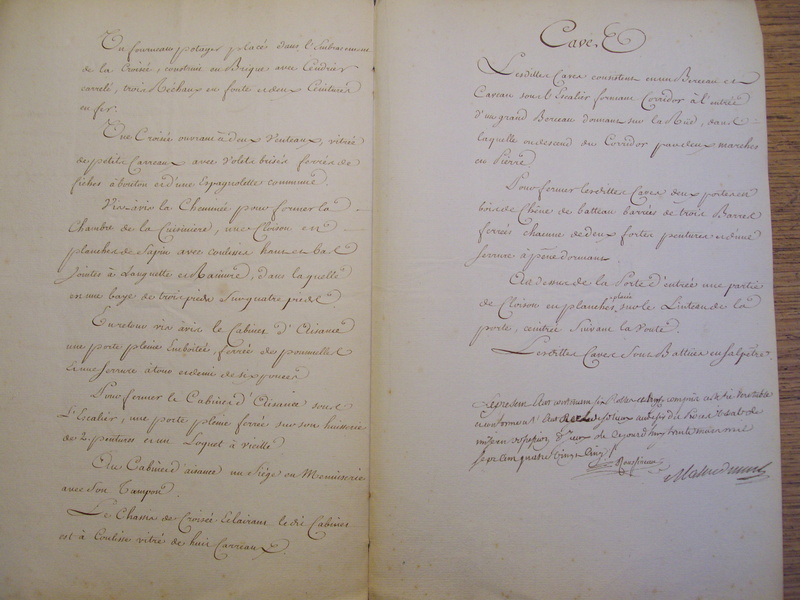 Un fourneau potager placés dans l'Embrasement
de la Croisée, construit en Brique avec Cendrier
carrelé, trois Réchaux en fonte et deux Ceintures
en fer.
Une Croisée ouvrant à deux Venteaux, vitrée
de petits Carreaux avec Volets brisés ferrés de
fiches à bouton et d'une Espagnolette commune.
Vis-avis la Cheminée pour former la
Chambre de la Cuisinière, une Cloison en
planches de Sapin avec coulisses haut et bas
Jointes à Languette et Rainure, dans laquelle
en une baye de trois pieds sur quatre pieds
En retour vis avis le Cabinet d'Aisance
une porte pleine Emboitée, ferrée de poumelles
et une serrure à tour et demie de six pouces
Pour fermer le Cabinet d'Aisance sous
l'Escalier, une porte pleine ferrée sur son huisserie
de 2 pentures et un Loquet à vielle
Au Cabinet d'aisance un Siége en Menuiserie
avec Son Tampon.
Le Chassis de Croisée Eclairant le dit Cabinet
est à Coulisse vitré de huit Carreaux.
Caves
Lesdittes Caves consistent en un Berceau et
Caveau sous l'Escalier formant Corridor à l'entrée
d'un grand Berceau donnant sur la Rüe, dans
laquelle on descend du Corridor par deux marches
en Pierre
Pour fermer lesdittes Caves deux portes en
bois de Chêne de batteau barrées de trois Barres
ferrées chacune de deux fortes pentures et d'une
serrure à pêne dormant.
Au dessus de la Porte d'entrée une partie
de Cloison en planches plein sur le Linteau de la
porte, ceintrée Suivant la Voute.
Lesdittes Caves Sont Battües en Salpêtre.
Le present Aux contenant six Rolles et
conforment aux
de ce jourd'huy trente mai mil
sept cent quatre vingt Cinq